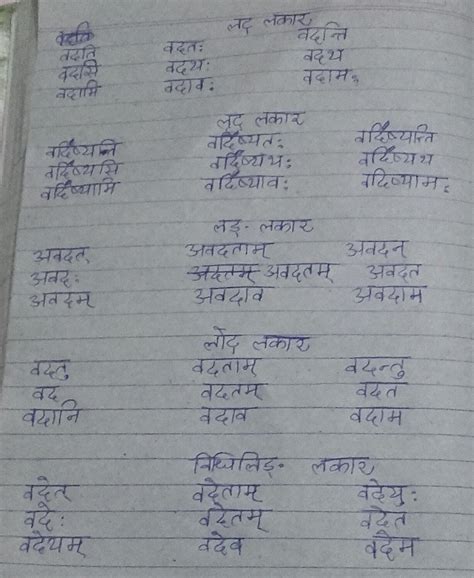 लट् लकार
वदति वदतः वदन्ति
वदसि वदथः वदथ
वदामि वदावः वदामः
लृट् लकार
वदिष्यति वदिष्यतः वदिष्यन्ति
वदिष्यसि वदिष्यथः वदिष्यथ
वदिष्यामि वदिष्यावः वदिष्यामः
लङ्- लकार
अवदत् अवदताम् अवदन्
अवदः अवदतम् अवदत
अवदम् अवदाव अवदाम
लोट् लकार
वदतु वदताम् वदन्तु
वद वदतम् वदत
वदानि वदाव वदाम
विधिलिङ्- लकार
वदेत् वदेताम् वदेयुः
वदेः वदेतम् वदेत
वदेयम् वदेव वदेम